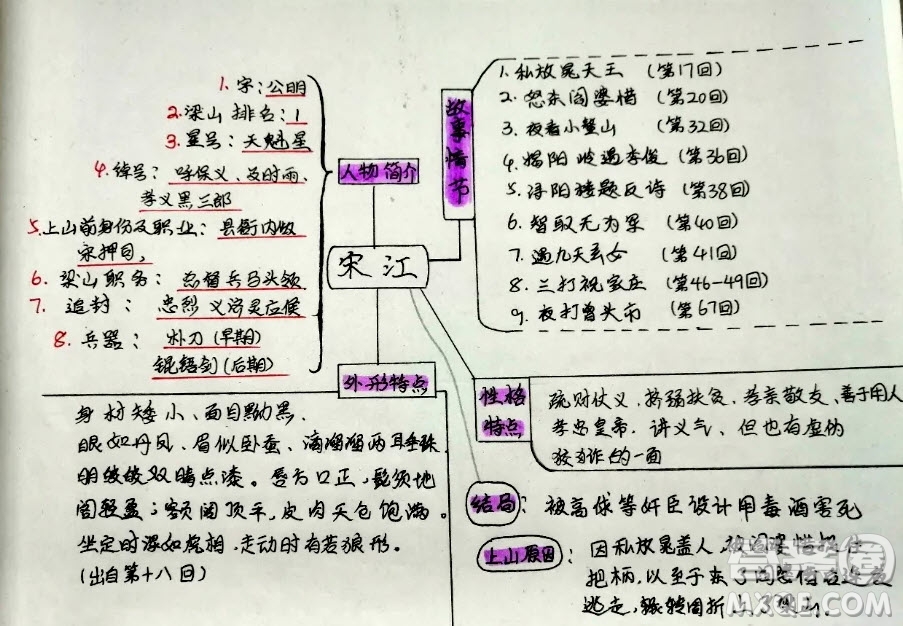 1. 字:公明
2.梁山 排名:1
3.星号:天魁星
4.绰号:呼保义、及时雨、
孝义黑三郎
5.上山前身份及职业:县衙内做
宋押司,
6. 梁山职务:总督兵马头领
7. 追封:忠烈义济灵应侯
8. 兵器:朴刀(早期)
锟铻剑(后期)
人物简介
宋江
故事情节
1.私放晁天王 (第17回)
2.怒杀阎婆惜 (第20回)
3.夜看小鳌山 (第32回)
4.揭阳岭遇李俊 (第36回)
5.浔阳楼题反诗 (第38回)
6.智取无为军 (第40回)
7.遇九天玄女 (第41回)
8.三打祝家庄 (第46-49回)
9.夜打曾头市 (第67回)
外形特点
身材矮小、面目黝黑、
眼如丹凤、眉似卧蚕、滴溜溜两耳垂珠
明皎皎双睛点漆。唇方口正,髭须地
阁轻盈;额阔顶平,皮肉天仓饱满。
坐定时浑如虎相,走动时有若狼形。
(出自第十八回)
性格
特点
疏财仗义、济弱扶贫、孝亲敬友、善于用人
孝忠皇帝、讲义气、但也有虚伪
狡诈的一面
结局:被高俅等奸臣设计用毒酒害死
上山原因:因私放晁盖人,被阎婆惜捉住
把柄,以至于杀了阎婆惜
逃走,辗转周折上了梁山.
答案圈
MXQE.COM